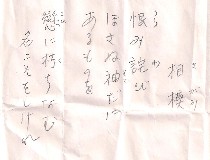 相模
恨み詫び
ほさぬ袖だに
あるものを
戀に朽ちなむ
名こそをしけれ